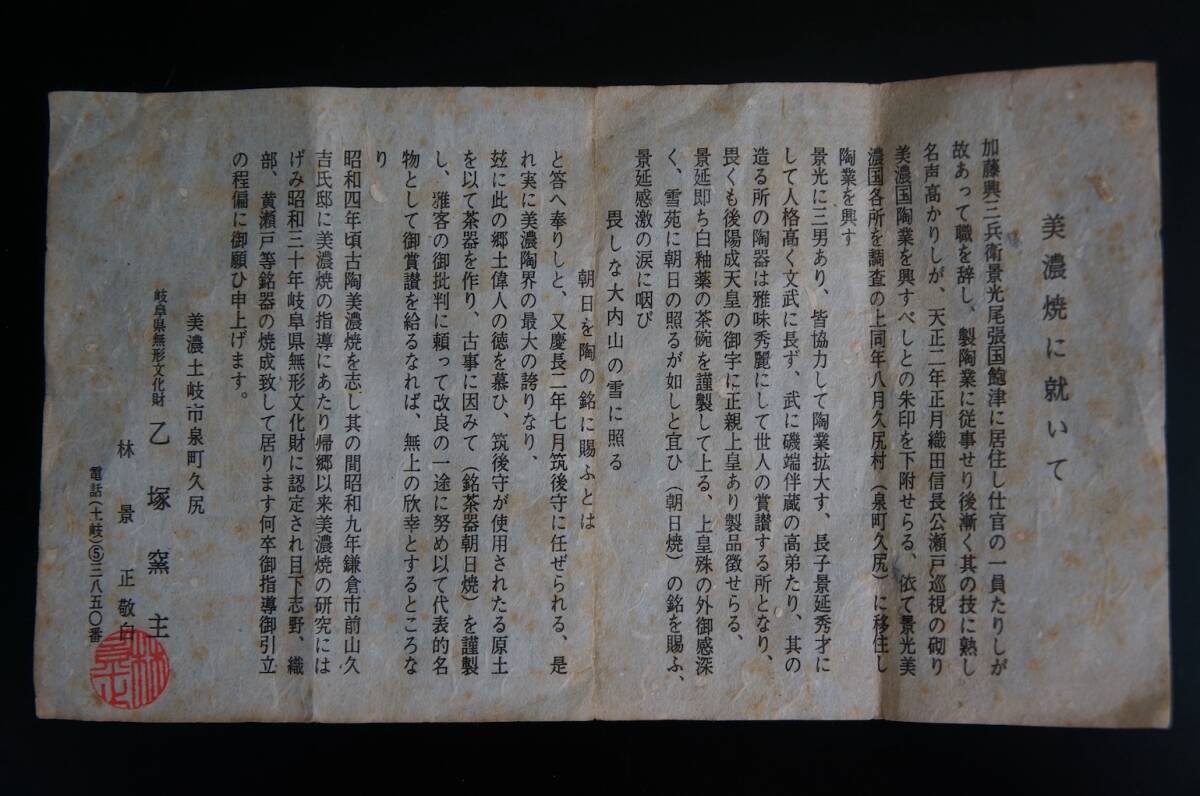 美濃焼に就いて
加藤興三兵衛景光尾張国飽津に居住し仕官の一員たりしが
故あって職を辞し、製陶業に従事せり後漸く其の技に熟し
名声高かりしが、天正二年正月織田信長公瀬戸巡視の砌り
美濃国陶業を興すべしとの朱印を下附せらる、依て景光美
濃国各所を調査の上同年八月久尻村（泉町久尻）に移住し
陶業を興す
景光に三男あり、皆協力して陶業拡大す、長子景延秀才に
して人格高く文武に長ず、武に磯端伴蔵の高弟たり、其の
造る所の陶器は雅味秀麗にして世人の賞讃する所となり、
畏くも後陽成天皇の御宇に正親上皇あり製品徴せらる、
景延即ち白釉薬の茶碗を謹製して上る、上皇殊の外御感深
く、雪苑に朝日の照るが如しと宜ひ（朝日焼）の銘を賜ふ、
景延感激の涙に咽び
畏しな大内山の雪に照る
朝日を陶の銘に賜ふとは
と答へ奉りしと、又慶長二年七月筑後守に任ぜられる、是
れ実に美濃陶界の最大の誇りなり、
玆に此の郷土偉人の徳を慕ひ、筑後守が使用されたる原土
を以て茶器を作り、古事に因みて（銘茶器朝日焼）を謹製
し、雅客の御批判に頼って改良の一途に努め以て代表的名
物として御賞讃を給るなれば、無上の欣幸とするところな
り
昭和四年頃古陶美濃焼を志し其の間昭和九年鎌倉市前山久
吉氏邸に美濃焼の指導にあたり帰郷以来美濃焼の研究には
げみ昭和三十年岐阜県無形文化財に認定され目下志野、織
部、黄瀬戸等銘器の焼成致して居ります何卒御指導御引立
の程偏に御願ひ申上げます。
美濃土岐市泉町久尻
岐阜県無形文化財 乙塚窯主
林景正敬白
電話（土岐）⑤三八五〇番
林景正